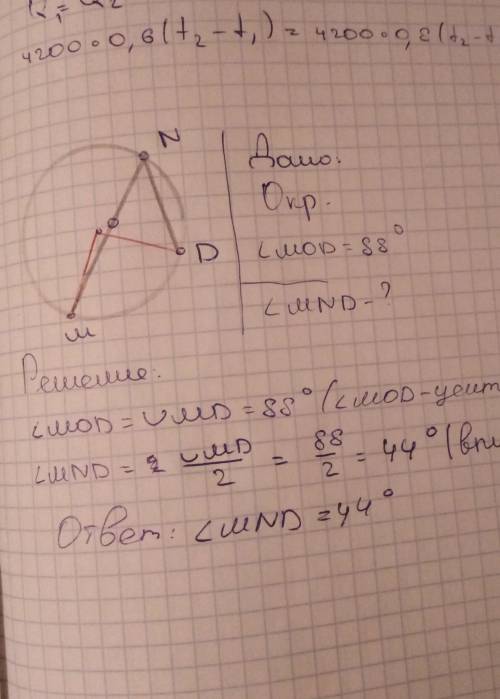 4200∘0,6(t₂-t₁)=4200∘0,8(t₂-t
N
D
M
Дано:
Окр.
∠MOD=88°
∠MND-?
Решение:
∠MOD=∪MD=88°(∠MOD-цент
∠MND= ∪MD/2 = 88/2 = 44°(впи
Ответ: ∠MND=44°